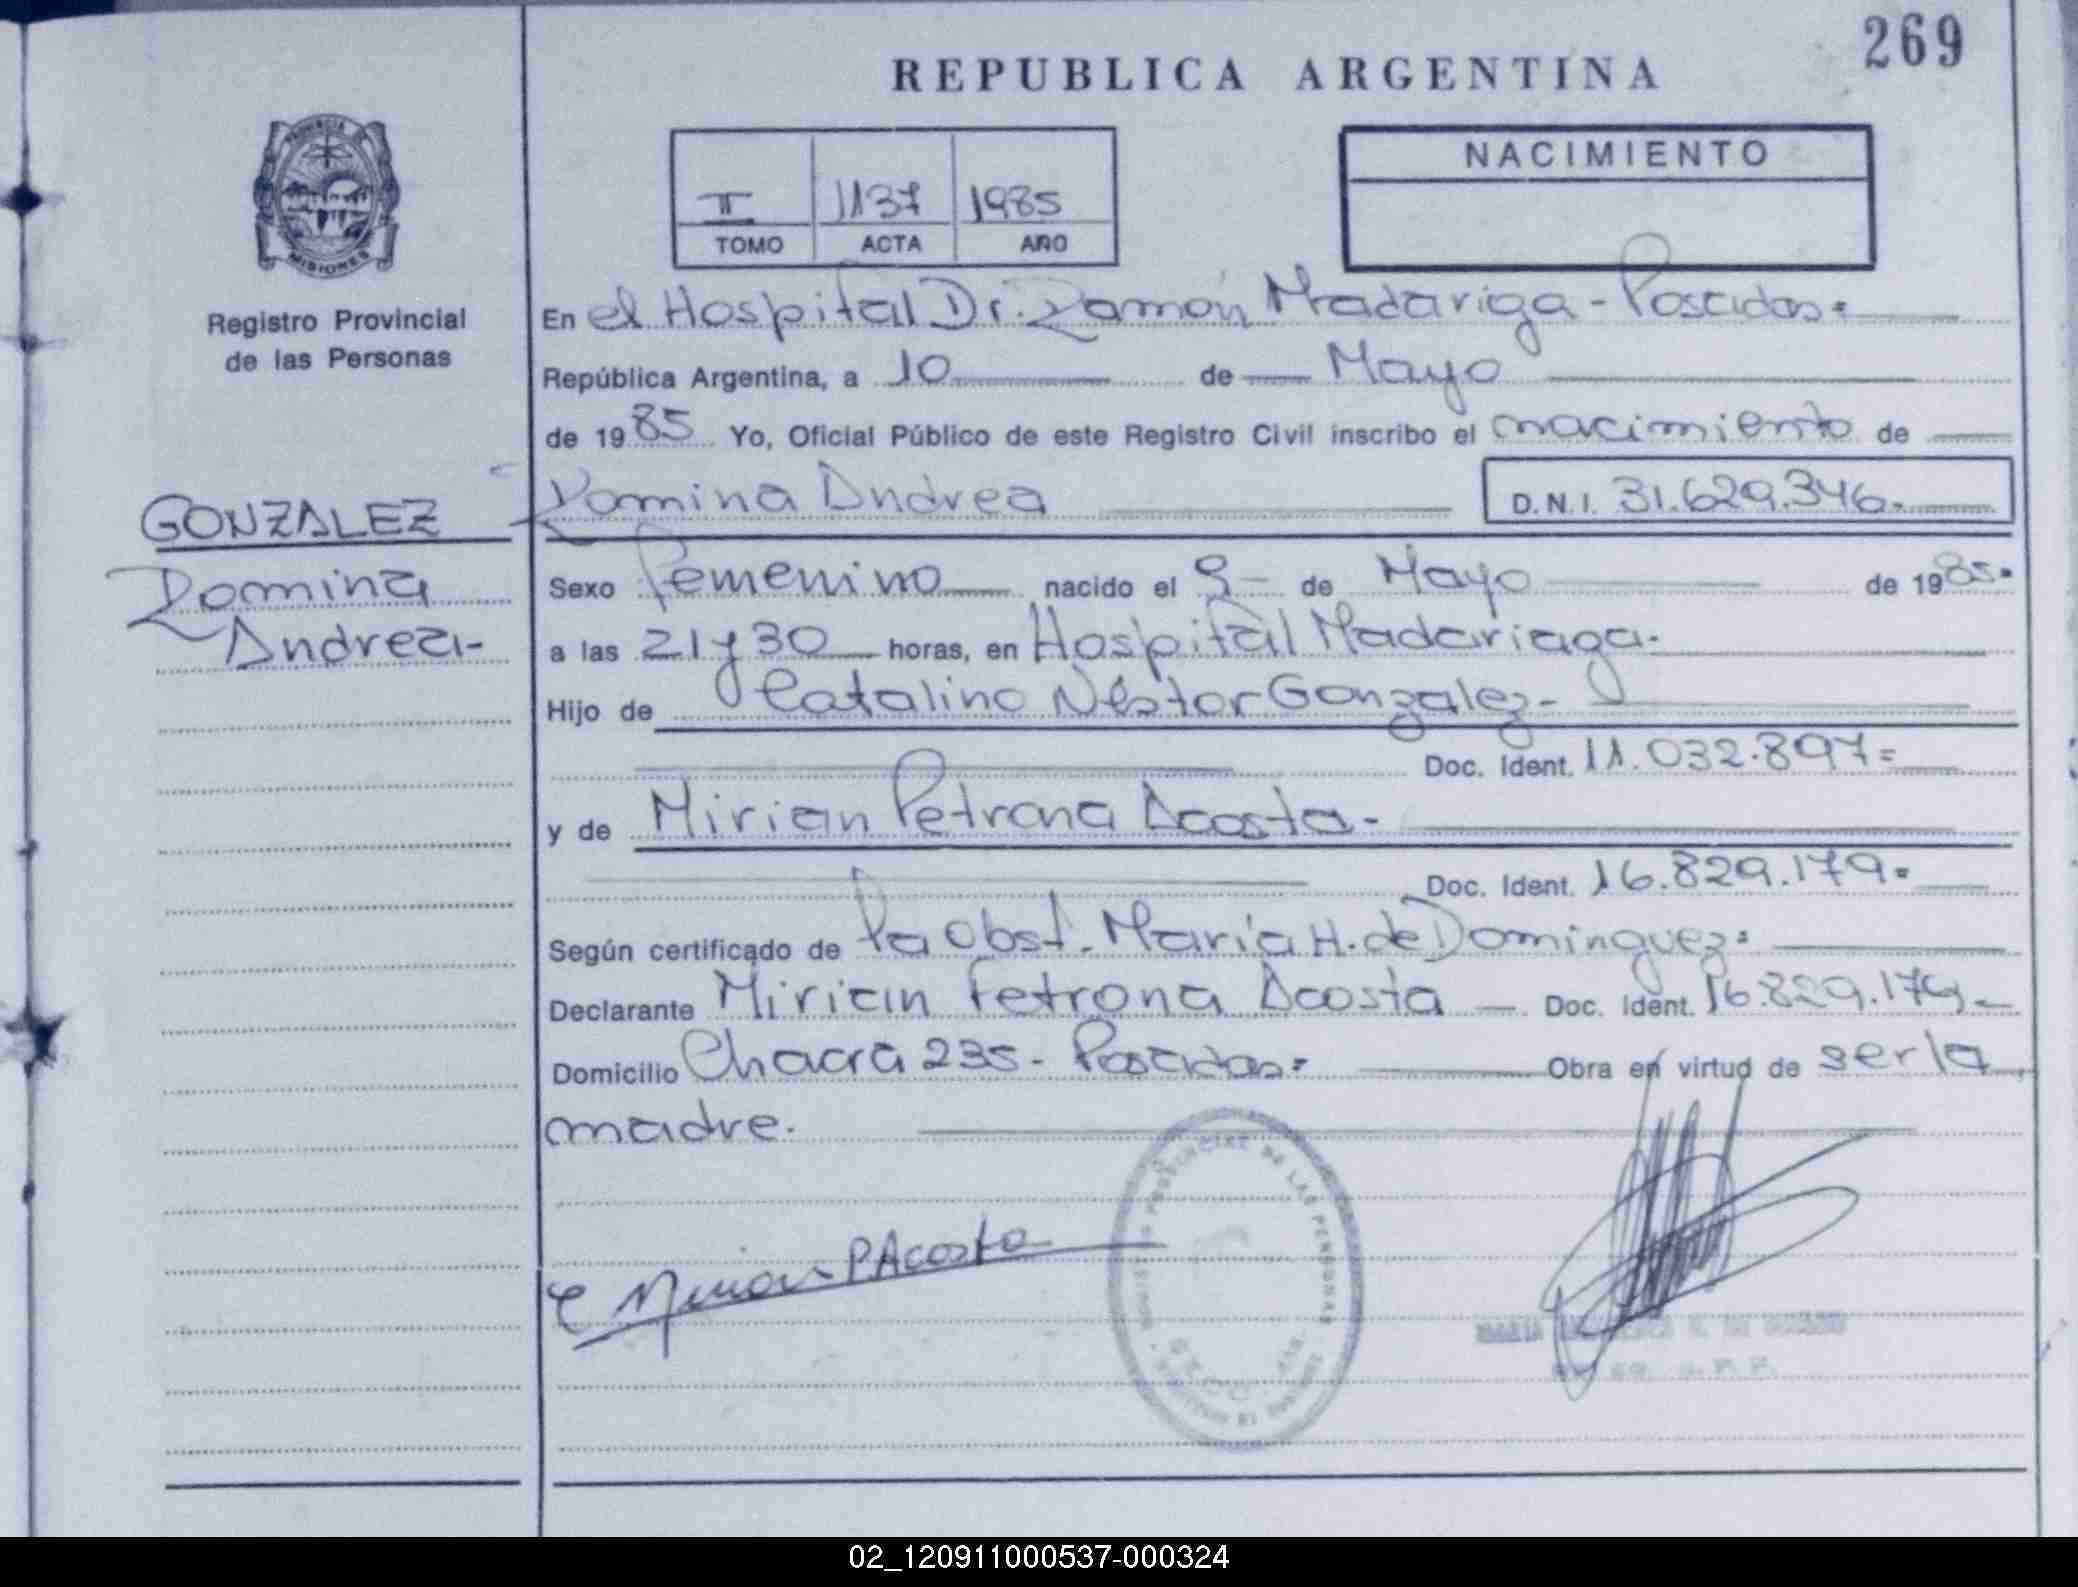 269
REPUBLICA ARGENTINA
PROVINCIA DE
MISIONES
Registro Provincial
de las Personas
II 1137 1985
TOMO ACTA AÑO
NACIMIENTO
En el Hospital Dr. Ramón Madariga - Posadas=
República Argentina, a 10 de Mayo
de 1985 Yo, Oficial Público de este Registro Civil inscribo el nacimiento de
Romina Andrea D.N.I. 31.629.346.
GONZALEZ
Romina
Andrea-
Sexo Femenino nacido el 9 de Mayo de 1985.
a las 21 y 30 horas, en Hospital Madariaga.
Hijo de Catalino Néstor Gonzalez-
Doc. Ident. 11.032.897=
y de Mirian Petrona Acosta-
Doc. Ident. 16.829.179=
Según certificado de la Obst. María H. de Dominguez=
Declarante Mirian Petrona Acosta — Doc. Ident. 16.829.179-
Domicilio Chacra 235- Posadas= Obra en virtud de ser la
madre.
Mirian P Acosta
PROVINCIAL DE LAS PERSONAS
02_120911000537-000324